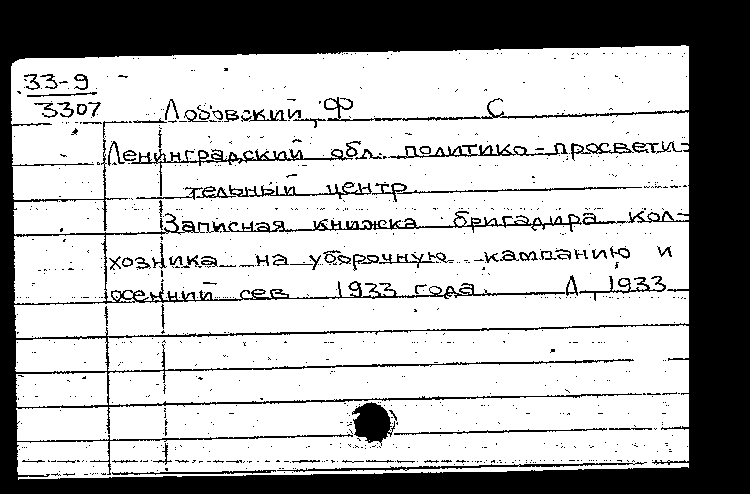 33-9
3307 Лобовский, Ф С
Ленинградский обл. политико-просвети-
тельный центр.
Записная книжка бригадира кол-
хозника на уборочную кампанию и
осенний сев 1933 года. Л, 1933